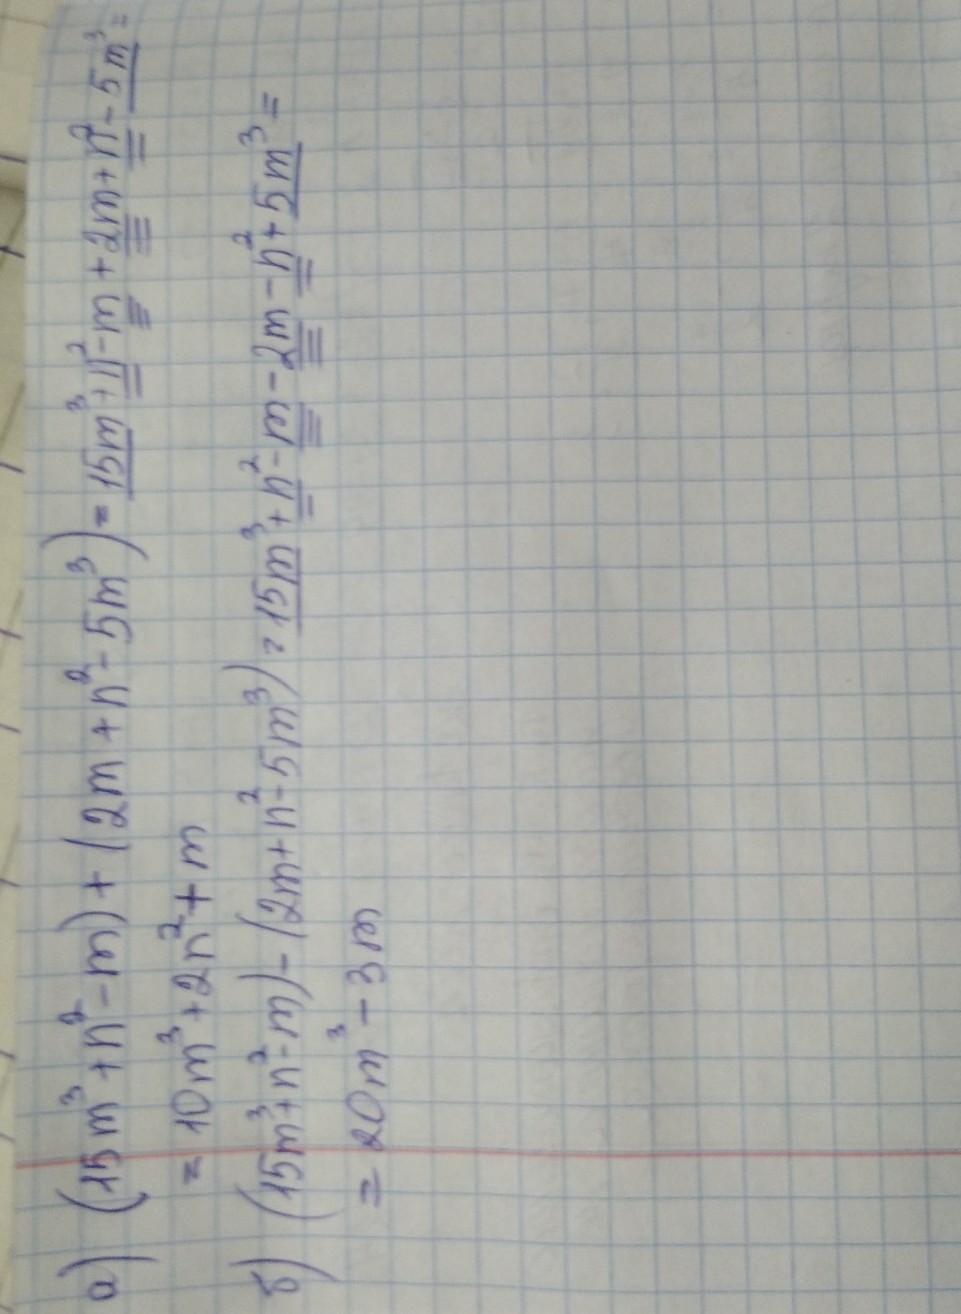 а) (15m³+n²-m)+(2m+n²-5m³)=15m³+n²-m+2m+n²-5m³=
=10m³+2n²+m
б) (15m³+n²-m)-(2m+n²-5m³)=15m³+n²-m-2m-n²+5m³=
=20m³-3m